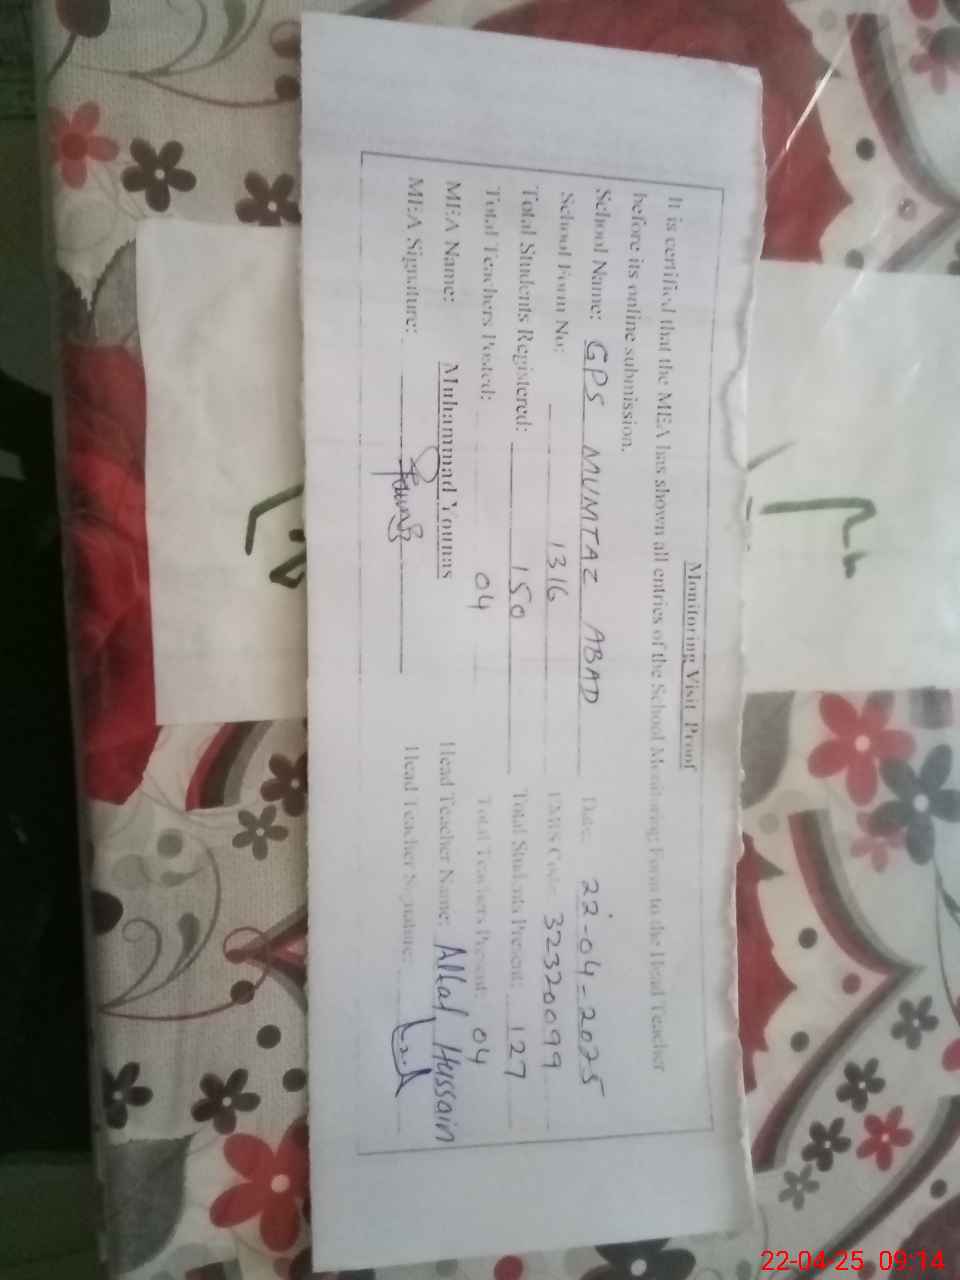 Monitoring Visit Proof
It is certified that the MEA has shown all entries of the School Monitoring Form to the Head Teacher
before its online submission.
School Name: GPS MUMTAZ ABAD Date: 22-04-2025
School Form No: 1316 EMIS Code: 32320099
Total Students Registered: 150 Total Students Present: 127
Total Teachers Posted: 04 Total Teachers Present: 04
MEA Name: Muhammad Younas Head Teacher Name: Altaf Hussain
MEA Signature: Head Teacher Signature:
22-04-25 09:14